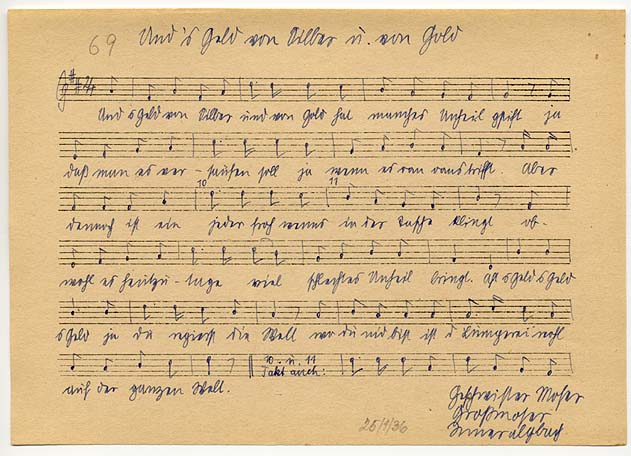 69 Und 's Geld von Silber u. von Gold
Und s Geld von Silber und von Gold hat manches Unheil gstift ja
daß man es ver- saufen soll ja wenn es ran rans trifft. Aber
10 11
dennoch ist ein jeder froh wenns in der Tasche klingt ob-
wohl es heutzu- tage viel schlechtes Unheil bringt. s Geld s Geld
s Geld ja du regierst die Welt wo du nid bist ist d Lumperei wohl
10. u. 11
Takt auch:
auf der ganzen Welt.
Geschwister Moser
Großmoser
Inneralpbach
25/1/36